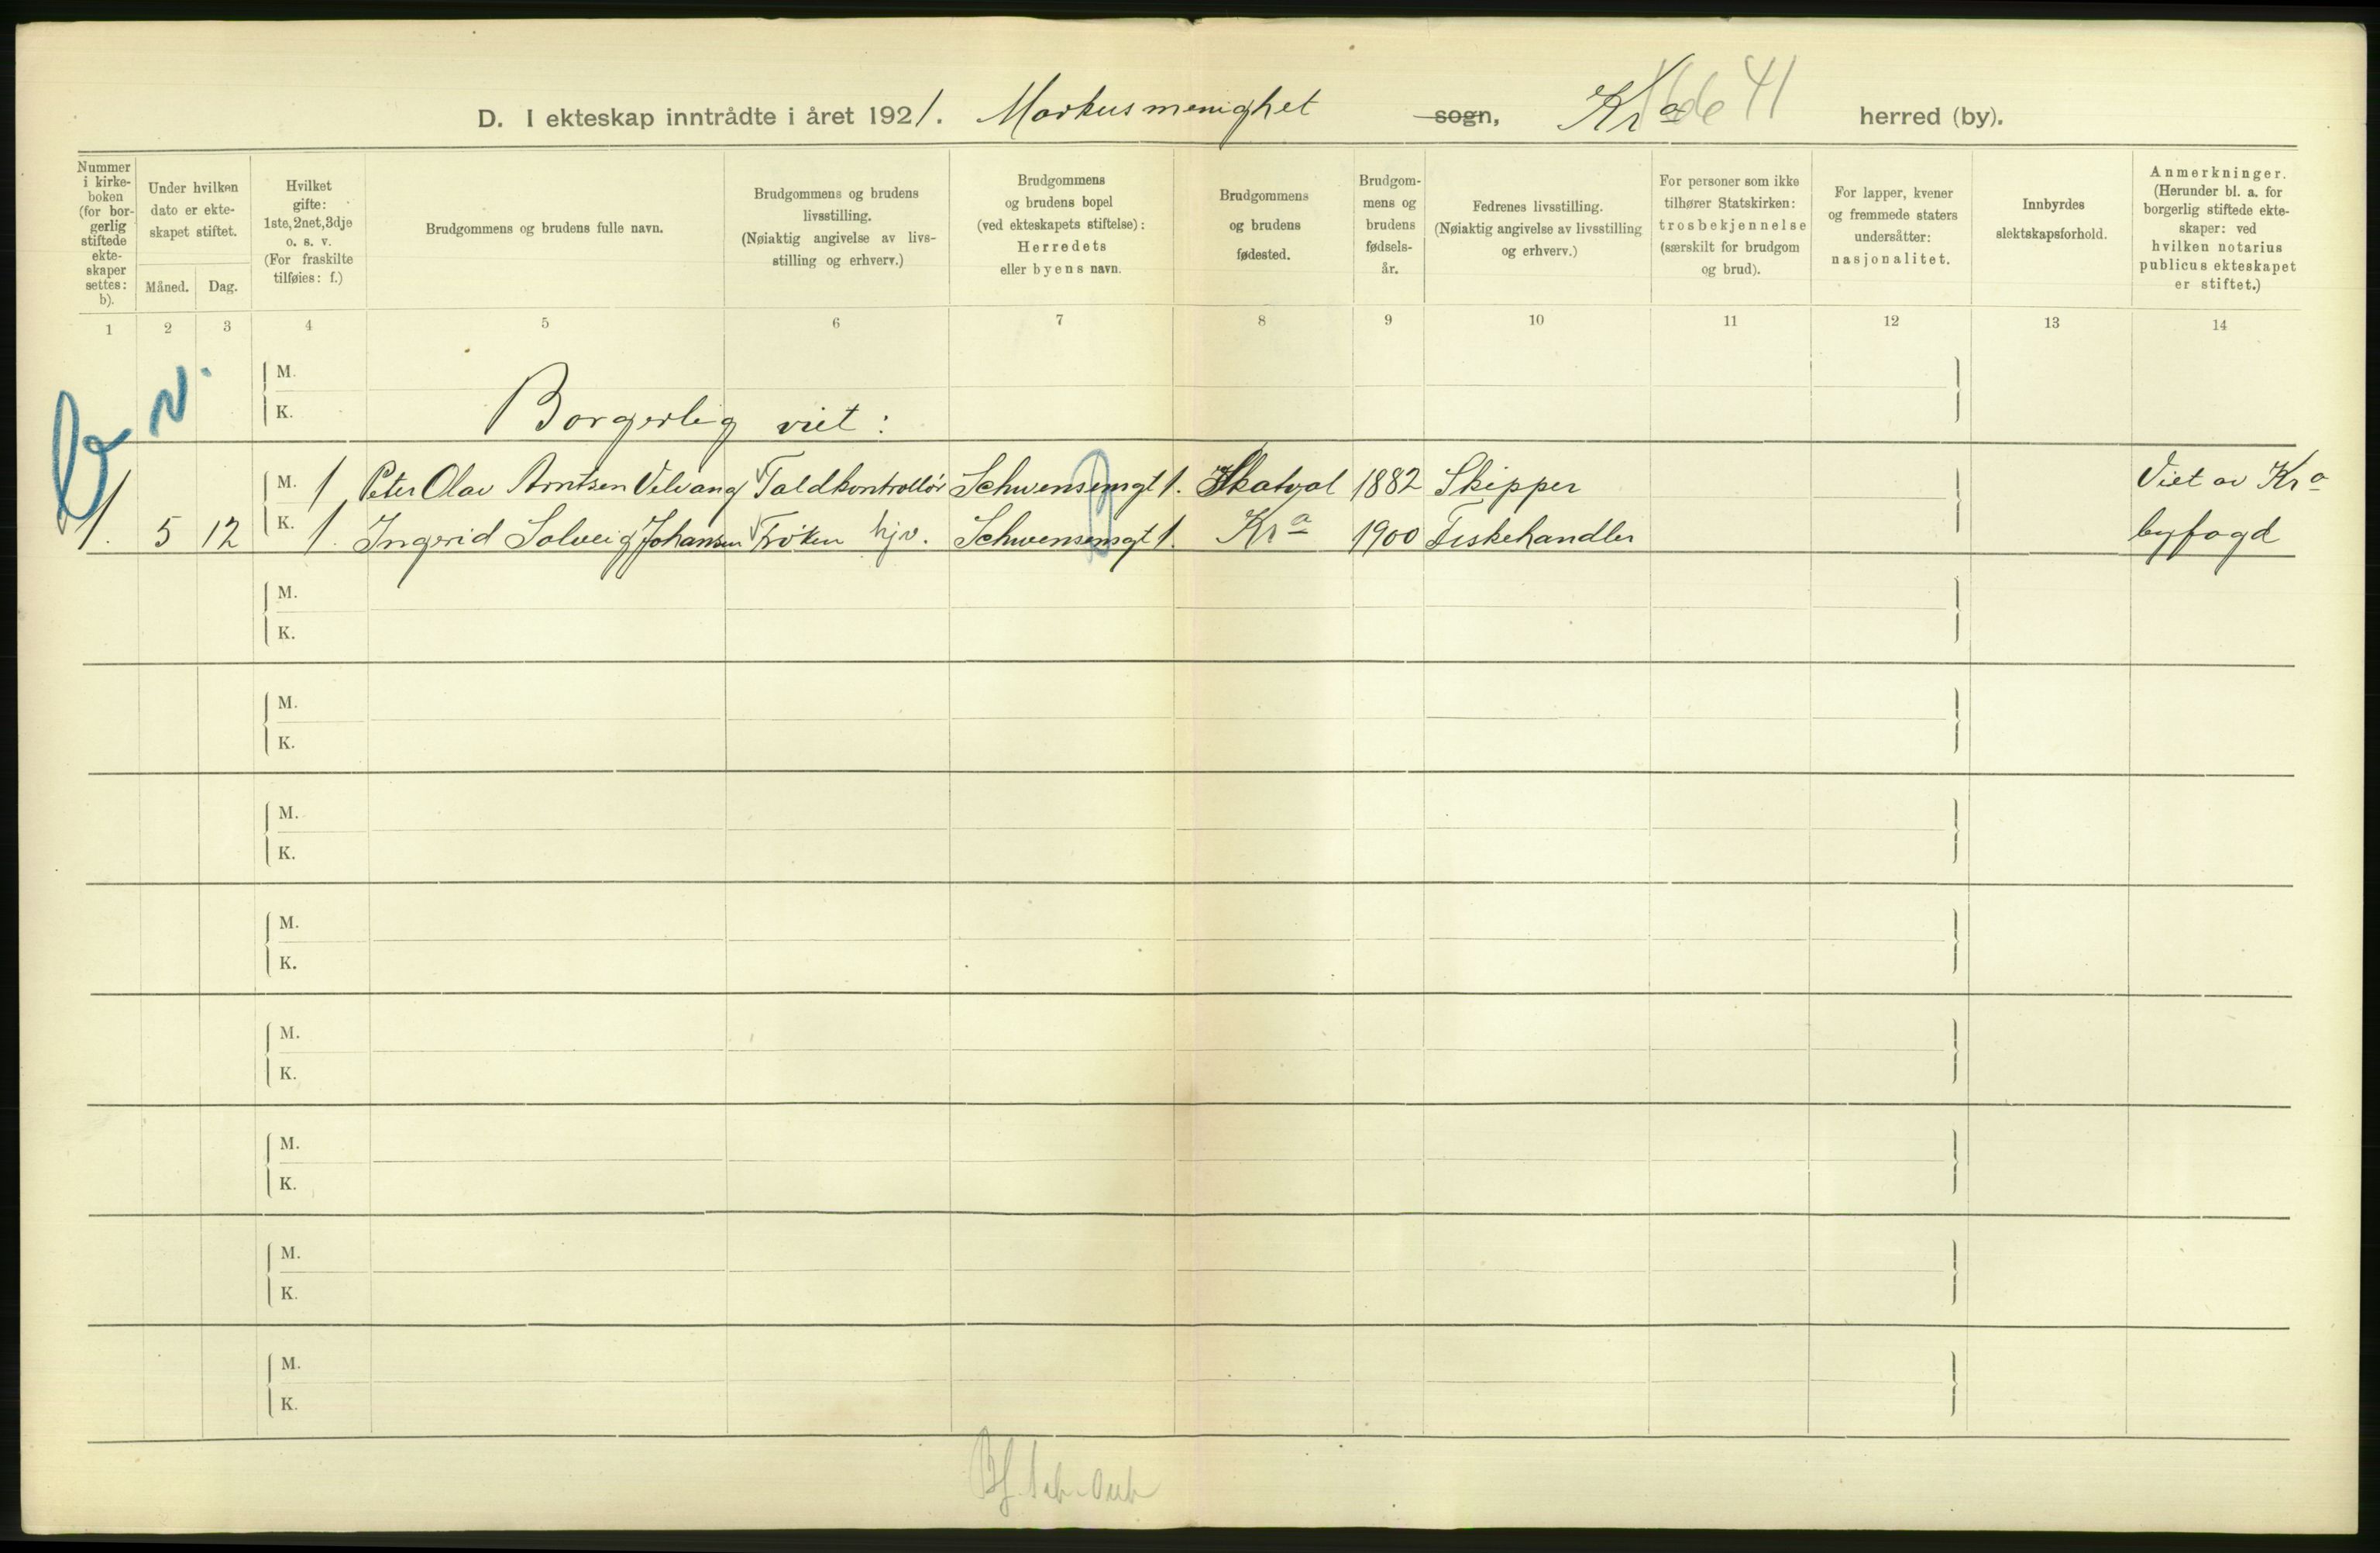 D. I ekteskap inntrådte i året 1921. Markusmenighet sogn, Kra 41 herred (by).
Nummer i kirke-boken (for bor-gerlig stiftede ekte-skaper settes: b).
Under hvilken dato er ekte-skapet stiftet.
Måned. Dag.
Hvilket gifte: 1ste, 2net, 3dje o. s. v. (For fraskilte tilføies: f.)
Brudgommens og brudens fulle navn.
Brudgommens og brudens livsstilling. (Nøiaktig angivelse av livs-stilling og erhverv.)
Brudgommens og brudens bopel (ved ekteskapets stiftelse): Herredets eller byens navn.
Brudgommens og brudens fødested.
Brudgom-mens og brudens fødsels-år.
Fedrenes livsstilling. (Nøiaktig angivelse av livsstilling og erhverv.)
For personer som ikke tilhører Statskirken: trosbekjennelse (særskilt for brudgom og brud).
For lapper, kvener og fremmede staters undersåtter: nasjonalitet.
Innbyrdes slektskapsforhold.
Anmerkninger. (Herunder bl. a. for borgerlig stiftede ekte-skaper: ved hvilken notarius publicus ekteskapet er stiftet.)
1 2 3 4 5 6 7 8 9 10 11 12 13 14
b. v.
M.
K. Borgerlig viet:
M. 1 Peter Olav Arntsen Velvang Toldkontrollør Schwensensgt 1. Skatval 1882 Skipper Viet av Kra
1. 5 12 K. 1. Ingerid Solveig Johansen Frøken hjv. Schwensensgt 1. Kra 1900 Fiskehandler byfogd
M.
K.
M.
K.
M.
K.
M.
K.
M.
K.
M.
K.
M.
K.
M.
K.